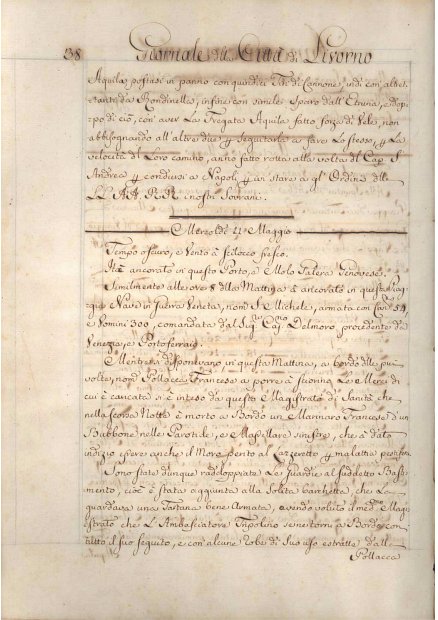 38 Giornale della Città di Livorno
Aquila postasi in panno con quindici Tiri di Cannone, indi con altret-
tanti da Rondinella, infine con simile Sparo dall'Etruria, e dopo
di ciò, con aver La Fregata Aquila fatto forza di Vele, non
abbisognando all'altre due p seguitarla a fare Lo stesso, p La
velocità del Loro camino, anno fatto rotta alla volta di Cap. S.
Andrea p condursi a Napoli, p ivi stare a gl'Ordini delle
LL. AA. RR. i nostri Sovrani.
Mercoldì 11 Maggio
Tempo oscuro, e Vento à Scilocco fresco.
Stà ancorato in questo Porto, e Molo Galera Genovese.
Similmente alle ore 8 della Mattina à ancorato in questa Spiag-
gia Nave in Guerra Veneta, nom. S. Michele, armata con Can. 54,
e Uomini 300, comandata dal Sig. Cap. Delmoro, procedente da
Venezia, e Portoferraio.
Mentre si disponevano in questa Mattina, a bordo della più
volte, nom. Pollacca Francese a porre à Sciorino Le Merci di
cui è caricata si è inteso da questo Magistrato di Sanità che
nella scorsa Notte è morto a Bordo un Marinaro Francese d'un
Bubbone nelle Parotide, e Mascellare sinistre, che à dato
indizio essere anche il Moro spento al Lazeretto p malattia pestifera.
Sono state dunque raddoppiate Le Guardie al suddetto Basti-
mento, cioè è stata aggiunta alla Solita barchetta, che La
guardava una Tartana bene Armata, avendo voluto il med. Magi-
strato che L'Ambasciatore Tripolino se ne torni a Bordo con
tutto il suo seguito, e con alcune Robe di Suo uso estratte dall.
Pollacca